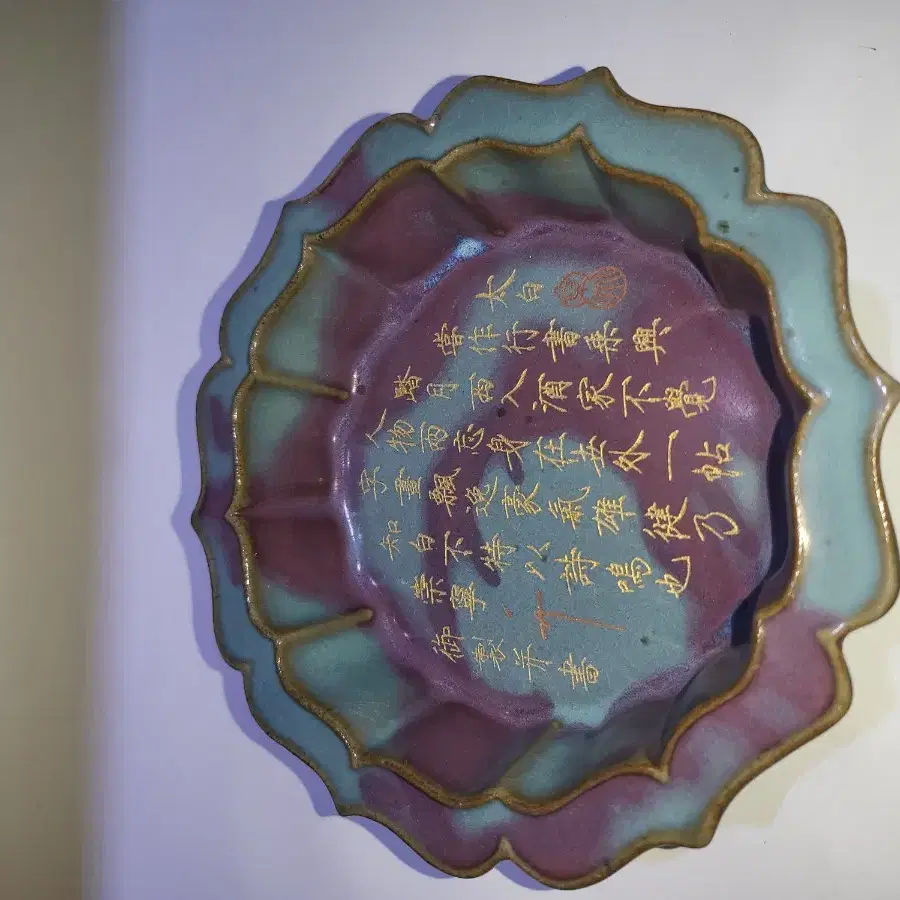 太白
嘗作行書乘興
踏月西入酒家不覺
人物兩忘身在世外一帖
字畫飄逸豪氣雄健乃
知白不特以詩鳴也
崇寧
御製并書